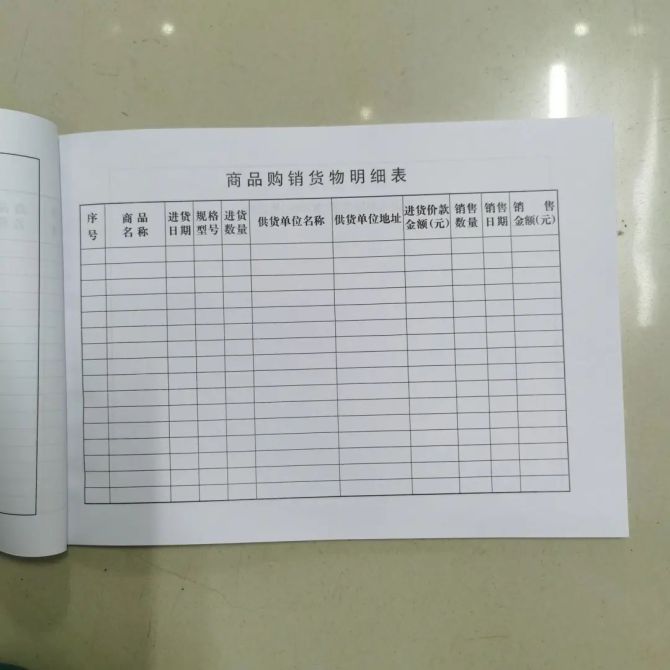 商品购销货物明细表
序号 商品名称 进货日期 规格型号 进货数量 供货单位名称 供货单位地址 进货价款金额(元) 销售数量 销售日期 销售金额(元)